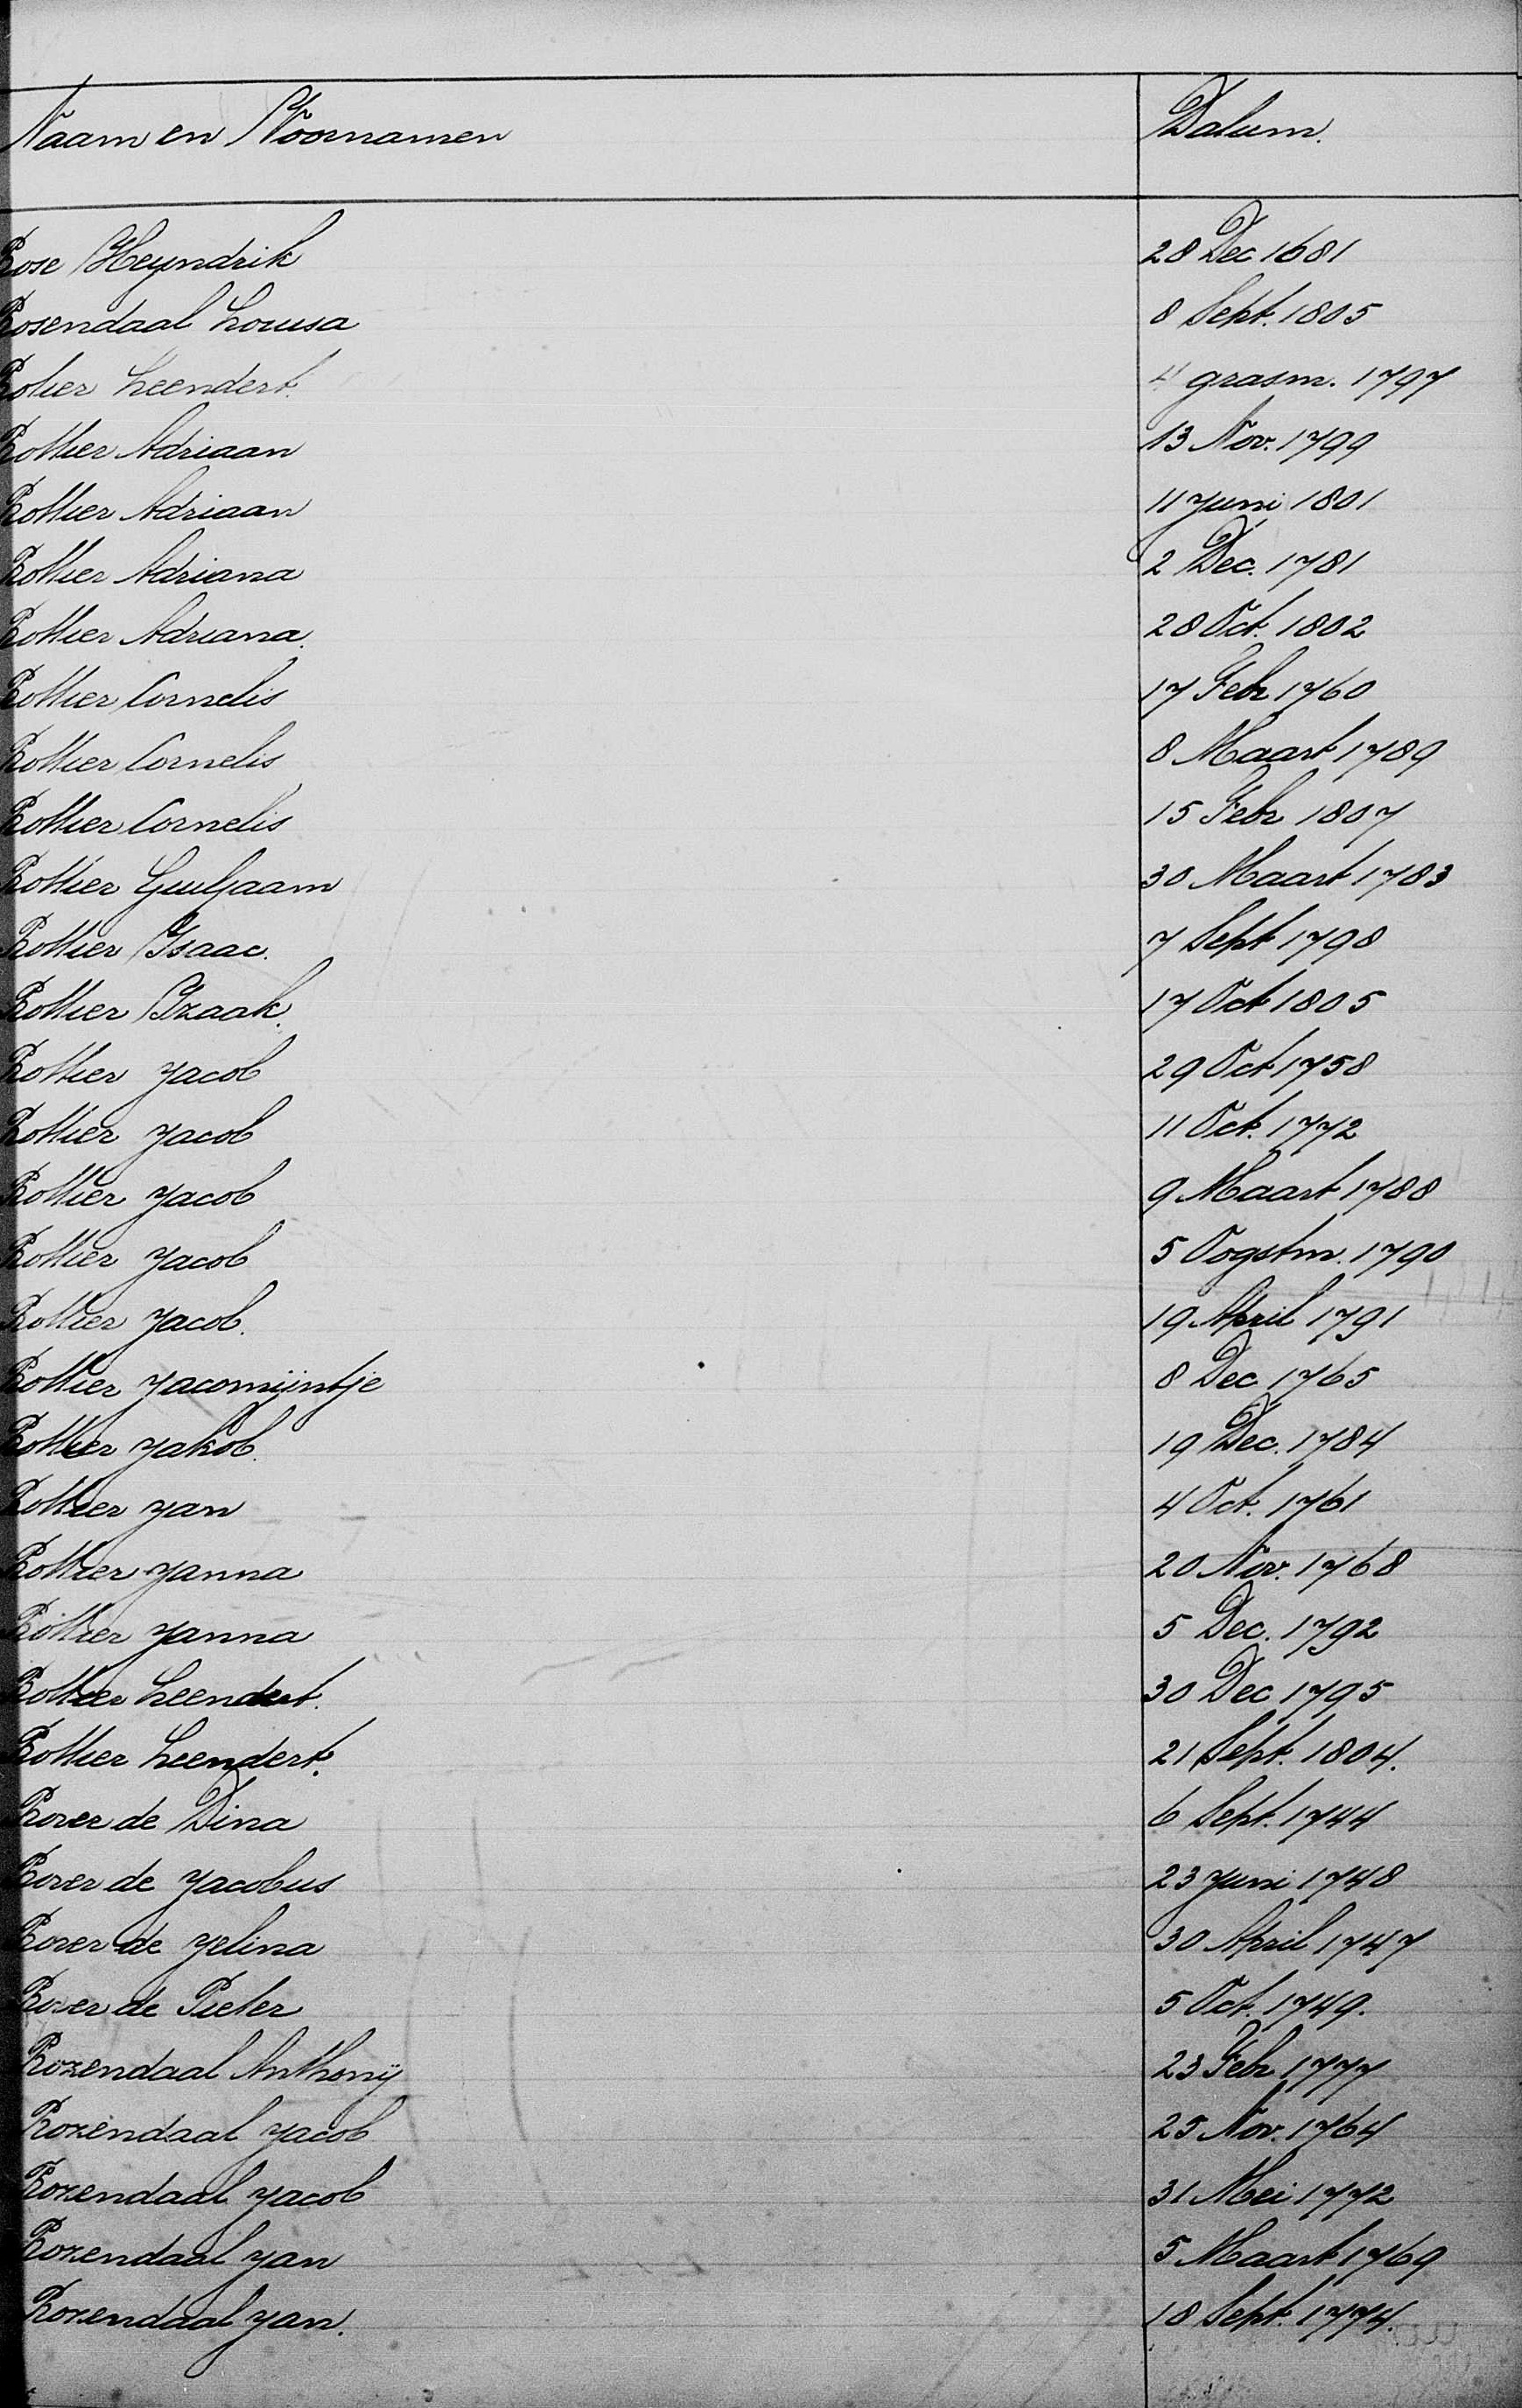 Naam en Voornamen Datum.
Rose Heyndrik 28 Dec 1681
Rosendaal Louisa 8 Sept. 1805
Rotier Leendert. 4 grasm. 1797
Rottier Adriaan 13 Nov. 1799
Rottier Adriaan 11 Juni 1801
Rottier Adriana 2 Dec. 1781
Rottier Adriana. 28 Oct. 1802
Rottier Cornelis 17 Febr 1760
Rottier Cornelis 8 Maart 1789
Rottier Cornelis 15 Febr 1807
Rottier Guiljaam 30 Maart 1783
Rottier Isaac. 7 Sept 1798
Rottier Izaak. 17 Oct 1805
Rottier Jacob 29 Oct 1758
Rottier Jacob 11 Oct. 1772
Rottier Jacob 9 Maart 1788
Rottier Jacob 5 Oogstm. 1790
Rottier Jacob. 19 April 1791
Rottier Jacomijntje 8 Dec 1765
Rottier Jakob. 19 Dec. 1784
Rottier Jan 4 Oct. 1761
Rottier Janna 20 Nov. 1768
Rottier Janna 5 Dec. 1792
Rottier Leendert. 30 Dec 1795
Rottier Leendert. 21 Sept. 1804.
Rover de Dina 6 Sept. 1744
Rover de Jacobus 23 Juni 1748
Rover de Jelina 30 April 1747
Rover de Pieter 5 Oct. 1749.
Rozendaal Anthonij 23 Febr 1777
Rozendaal Jacob 25 Nov. 1764
Rozendaal Jacob 31 Mei 1772
Rozendaal Jan 5 Maart 1769
Rozendaal Jan. 18 Sept. 1774.